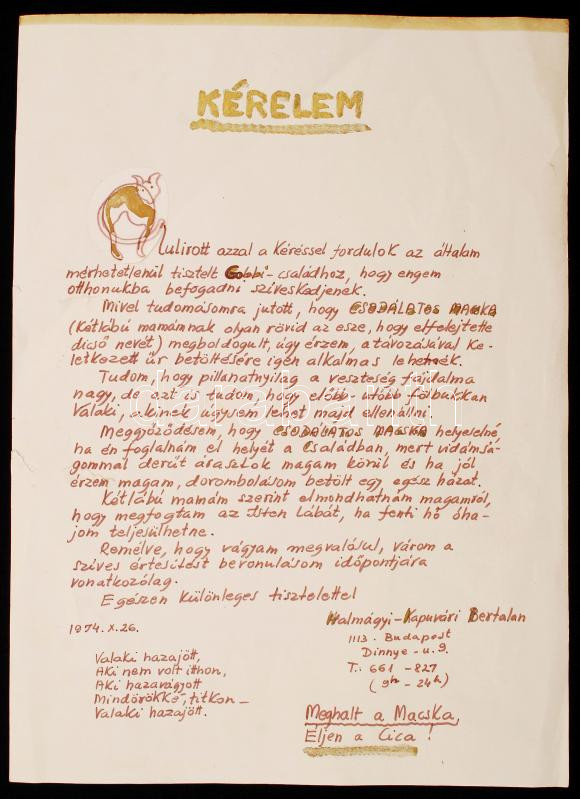 KÉRELEM
Alulirott azzal a kéréssel fordulok az általam
mérhetetlenül tisztelt Gobbi-családhoz, hogy engem
otthonukba befogadni sziveskedjenek.
Mivel tudomásomra jutott, hogy CSODÁLATOS MACSKA
(Kétlábú mamámnak olyan rövid az esze, hogy elfelejtette
dicső nevét) megboldogult, úgy érzem, a távozásával ke-
letkezett űr betöltésére igén alkalmas lehetnék.
Tudom, hogy pillanatnyilag a veszteség fájdalma
nagy, de azt is tudom, hogy előbb-utóbb felbukkan
Valaki, akinek úgysem lehet majd ellenállni.
Meggyőződésem, hogy CSODÁLATOS MACSKA helyeselné
ha én foglalnám el helyét a Családban, mert vidámsá-
gommal derűt árasztok magam körül és ha jól
érzem magam, dorombolásom betölt egy egész házat.
Kétlábú mamám szerint elmondhatnám magamról,
hogy megfogtam az Isten Lábát, ha fenti hő óha-
jom teljesülhetne.
Remélve, hogy vágyam megvalósul, várom a
szives értesitést bevonulásom időpontjára
vonatkozólag.
Egészen különleges tisztelettel
Halmágyi-Kapuvári Bertalan
1974. X. 26.
1113. Budapest
Dinnye-u. 9.
T.: 661-827
(9h - 24h)
Valaki hazajött,
Aki nem volt itthon,
Aki hazavágyott
Mindörökké, titkon-
Valaki hazajött.
Meghalt a Macska,
Éljen a Cica!
darabanth